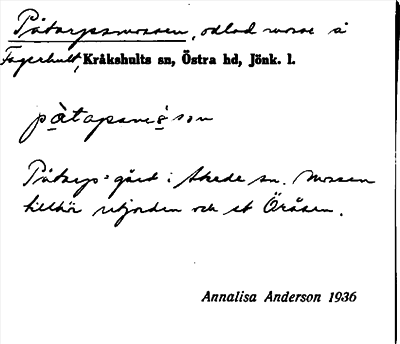 Påtarpsmossen, odlad mosse å
Fagerhult, Kråkshults sn, Östra hd, Jönk. l.
Påtarp = gård i Skede sn. Mossen
tillhör utjorden och et Öråsen.
Annalisa Anderson 1936